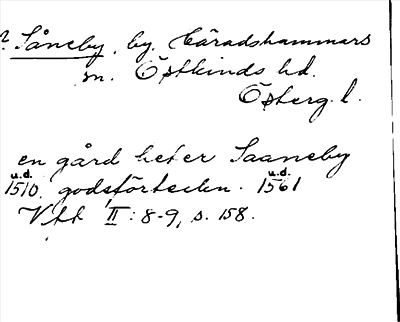 ? Såneby, by, Häradshammars
sn. Östkinds hd.
Österg. l.
en gård heter Saaneby
u.d. u.d.
1510. godsförteckn. 1561
Vtt II: 8-9, s. 158.